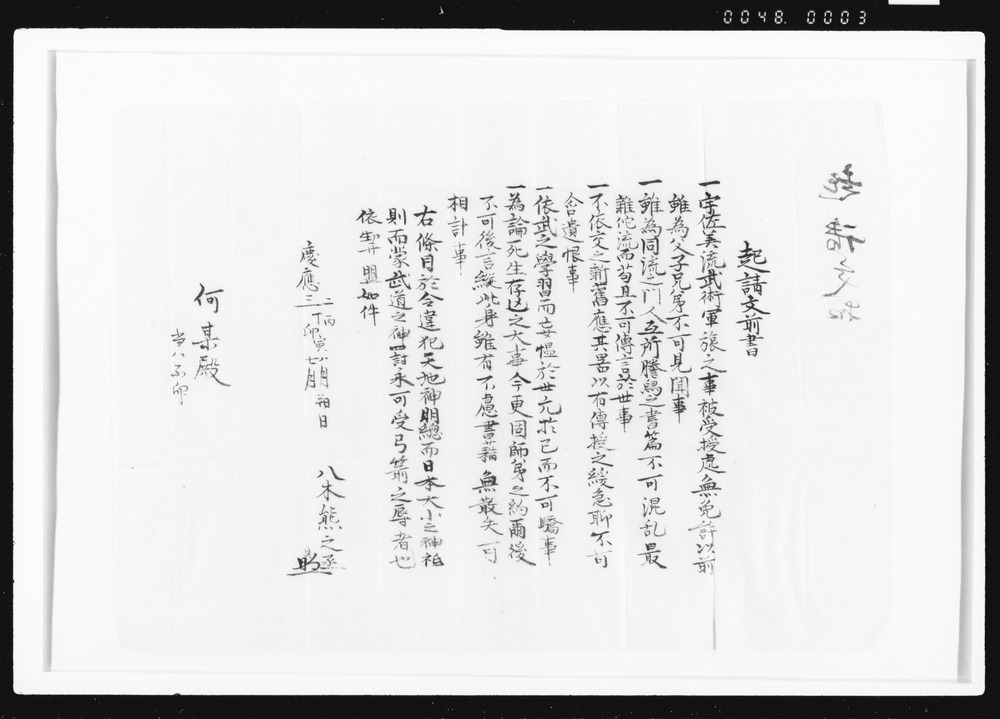 0048. 0003
起請文前書
一宇佐美流武術軍旅之事被受授處無免許以前
雖為父子兄弟不可見聞事
一雖為同流之門人互所謄寫之書篇不可混乱最
雖佗流而苟且不可傳言於世事
一不依交之新舊應其器以有傳授之緩急聊不可
含遺恨事
一依武之學習而妄慍於世亢於己而不可驕事
一為論死生存亡之大事今更固師弟之約爾後
不可後言縱此身雖有不慮書籍無散失可
相計事
右條目於令違犯天地神明總而日本大小之神祇
則而蒙武道之神罰永可受弓箭之辱者也
依 盟如件
慶應三 丁卯 七月 朔日
八木熊之丞
何某殿